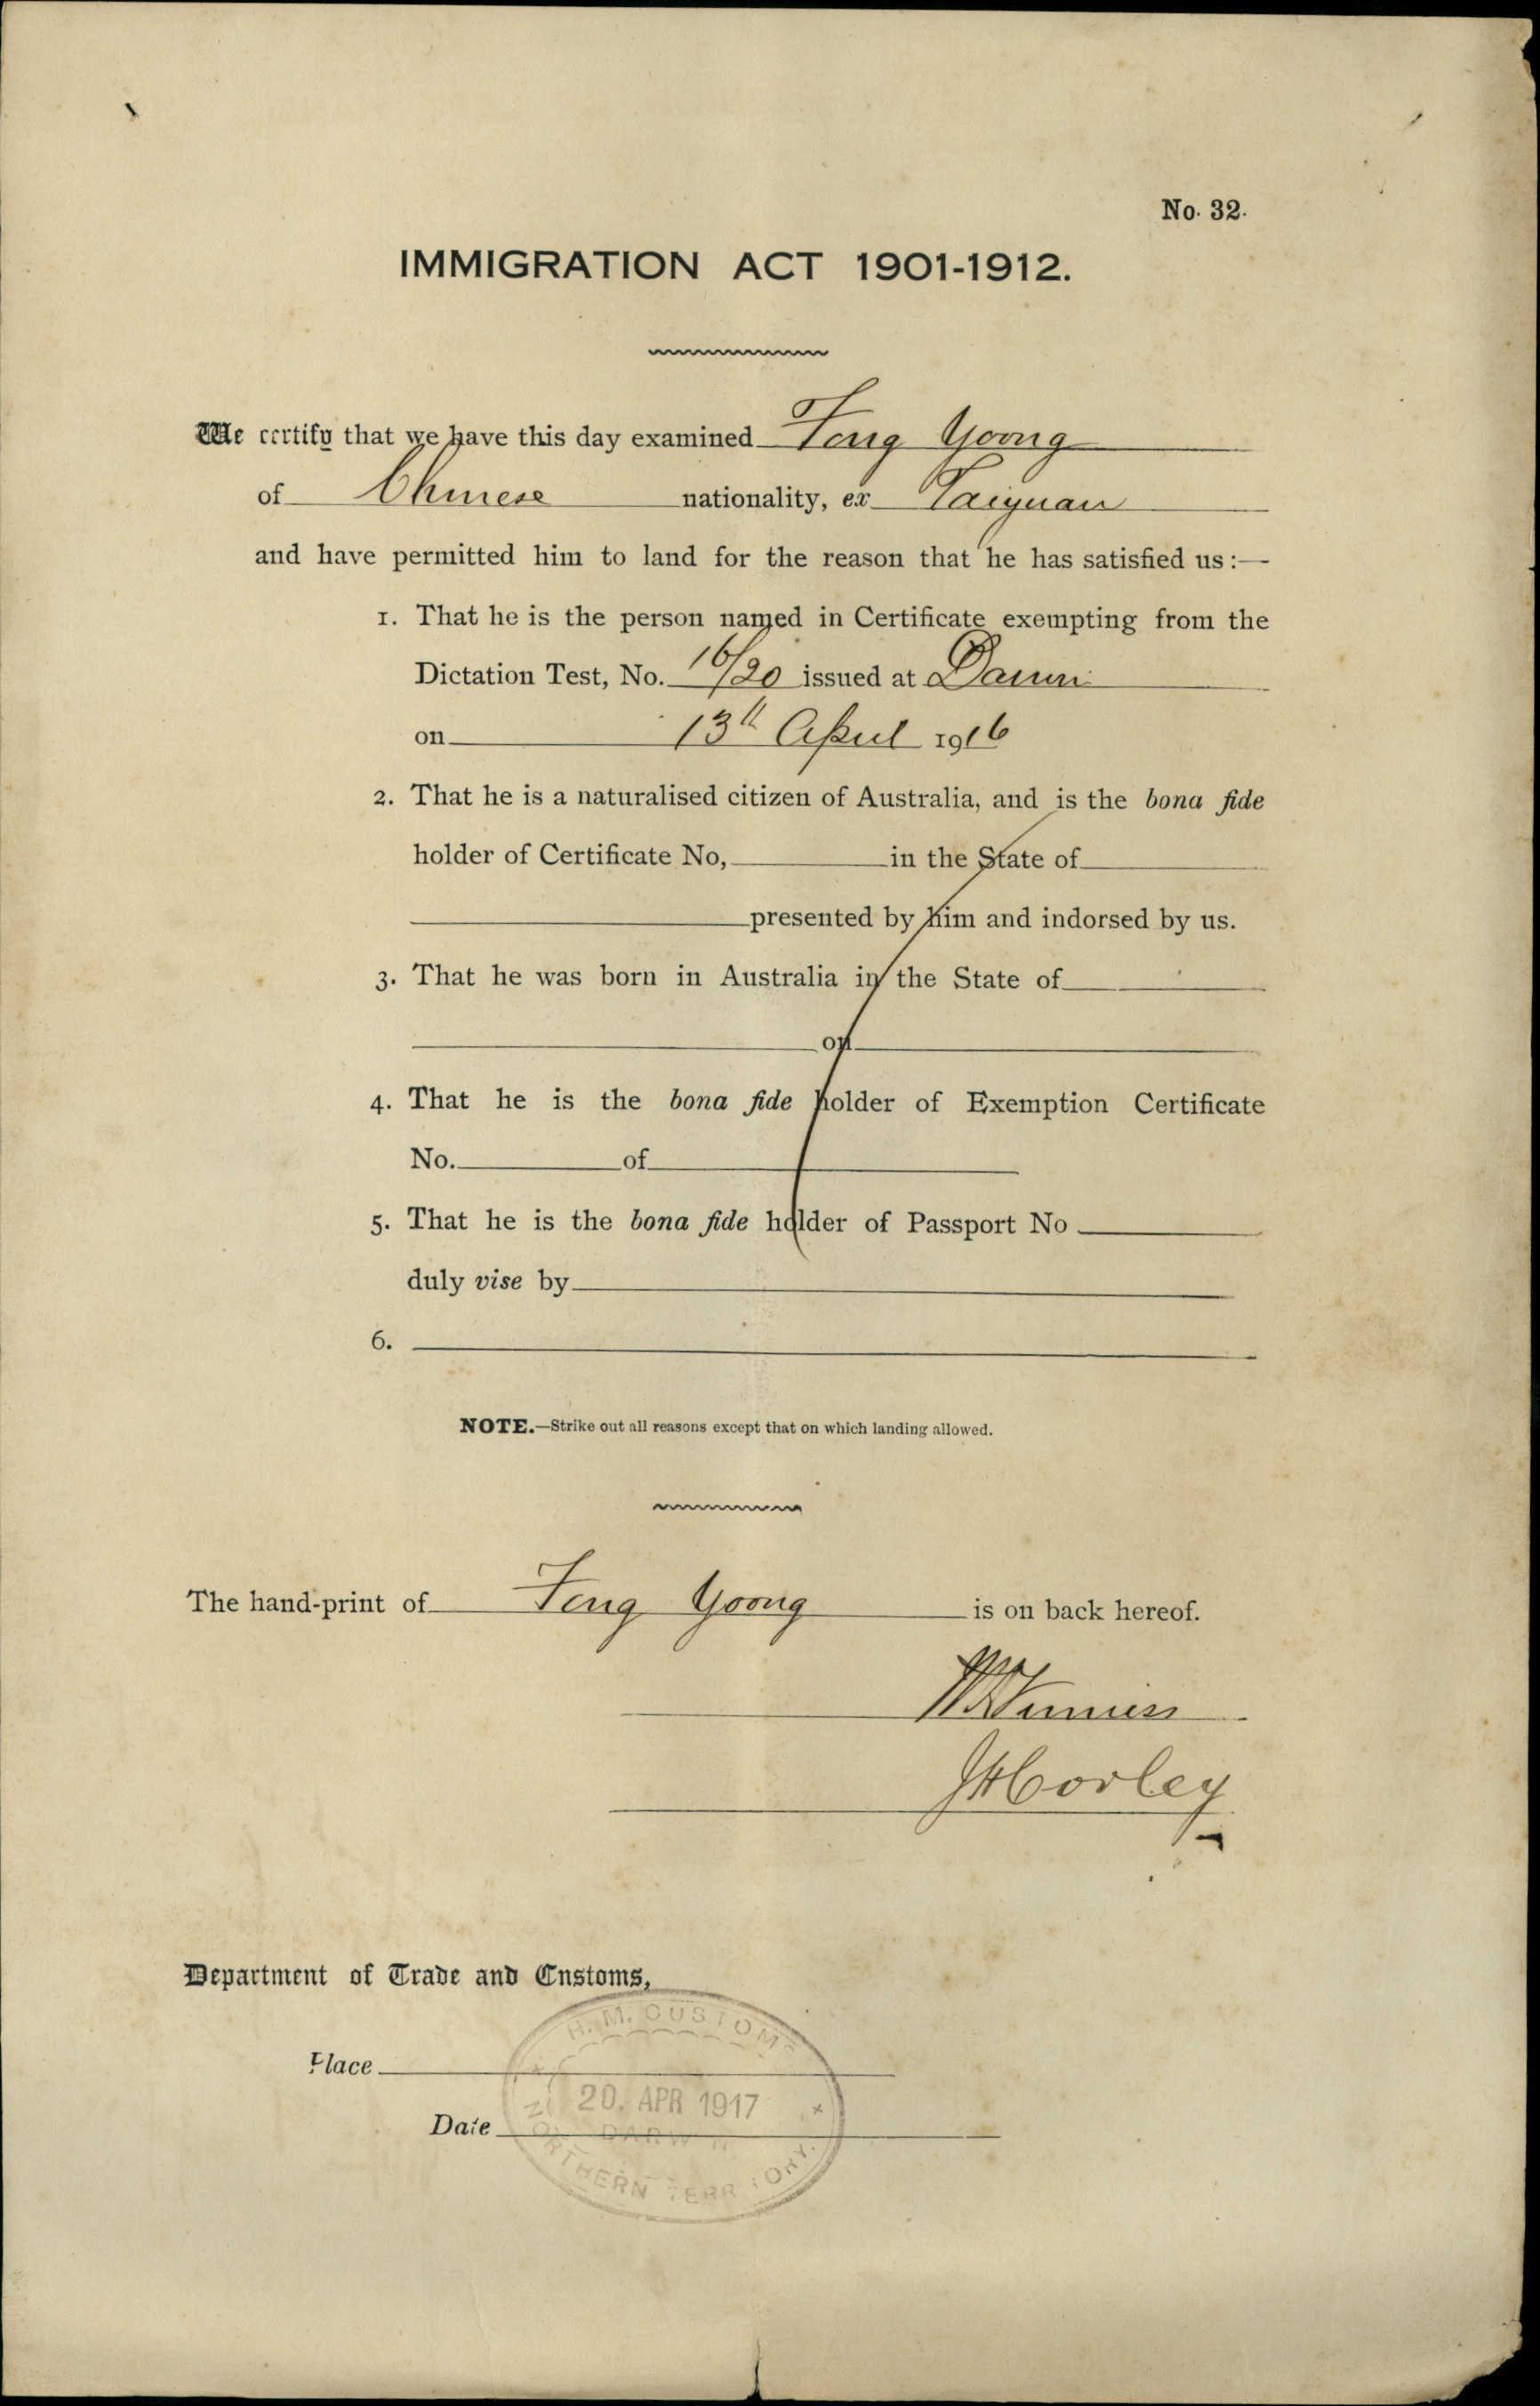 No. 32.
IMMIGRATION ACT 1901-1912.
We certify that we have this day examined Fong Yoong
of Chinese nationality, ex Taiyuan
and have permitted him to land for the reason that he has satisfied us:—
1. That he is the person named in Certificate exempting from the
Dictation Test, No. 16/20 issued at Darwin
on 13th April 1916
2. That he is a naturalised citizen of Australia, and is the bona fide
holder of Certificate No, in the State of
presented by him and indorsed by us.
3. That he was born in Australia in the State of
on
4. That he is the bona fide holder of Exemption Certificate
No. of
5. That he is the bona fide holder of Passport No
duly vise by
6.
NOTE.—Strike out all reasons except that on which landing allowed.
The hand-print of Fong Yoong is on back hereof.
Department of Trade and Customs,
H. M. CUSTOMS
Place
20. APR 1917
Date
DARWIN
NORTHERN TERRITORY.